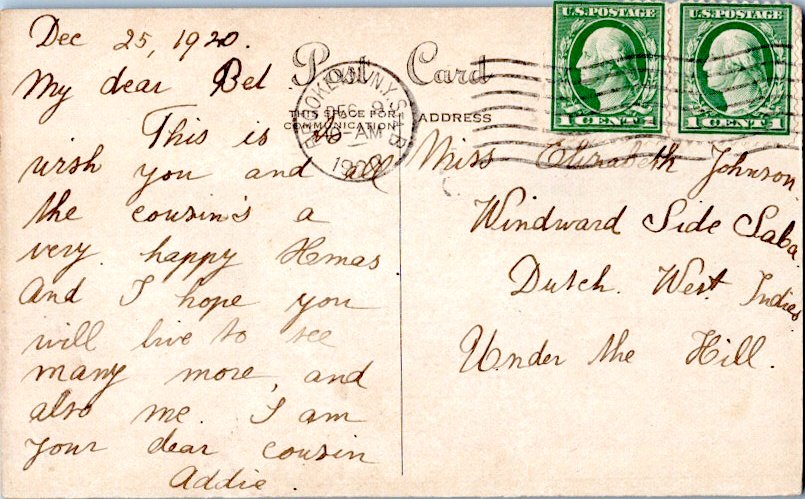 Dec 25, 1920.
My dear Bel
This is to
wish you and all
the cousin's a
very happy Xmas
And I hope you
will live to see
many more, and
also me. I am
your dear cousin
Addie.
Post Card
THIS SPACE FOR
COMMUNICATION
ADDRESS
BROOKLYN, N.Y. STA B
DEC 9
AM
1920
U.S. POSTAGE
1 CENT 1
U.S. POSTAGE
1 CENT 1
Miss Elizabeth Johnson
Windward Side Saba
Dutch. West. Indies
Under the Hill.